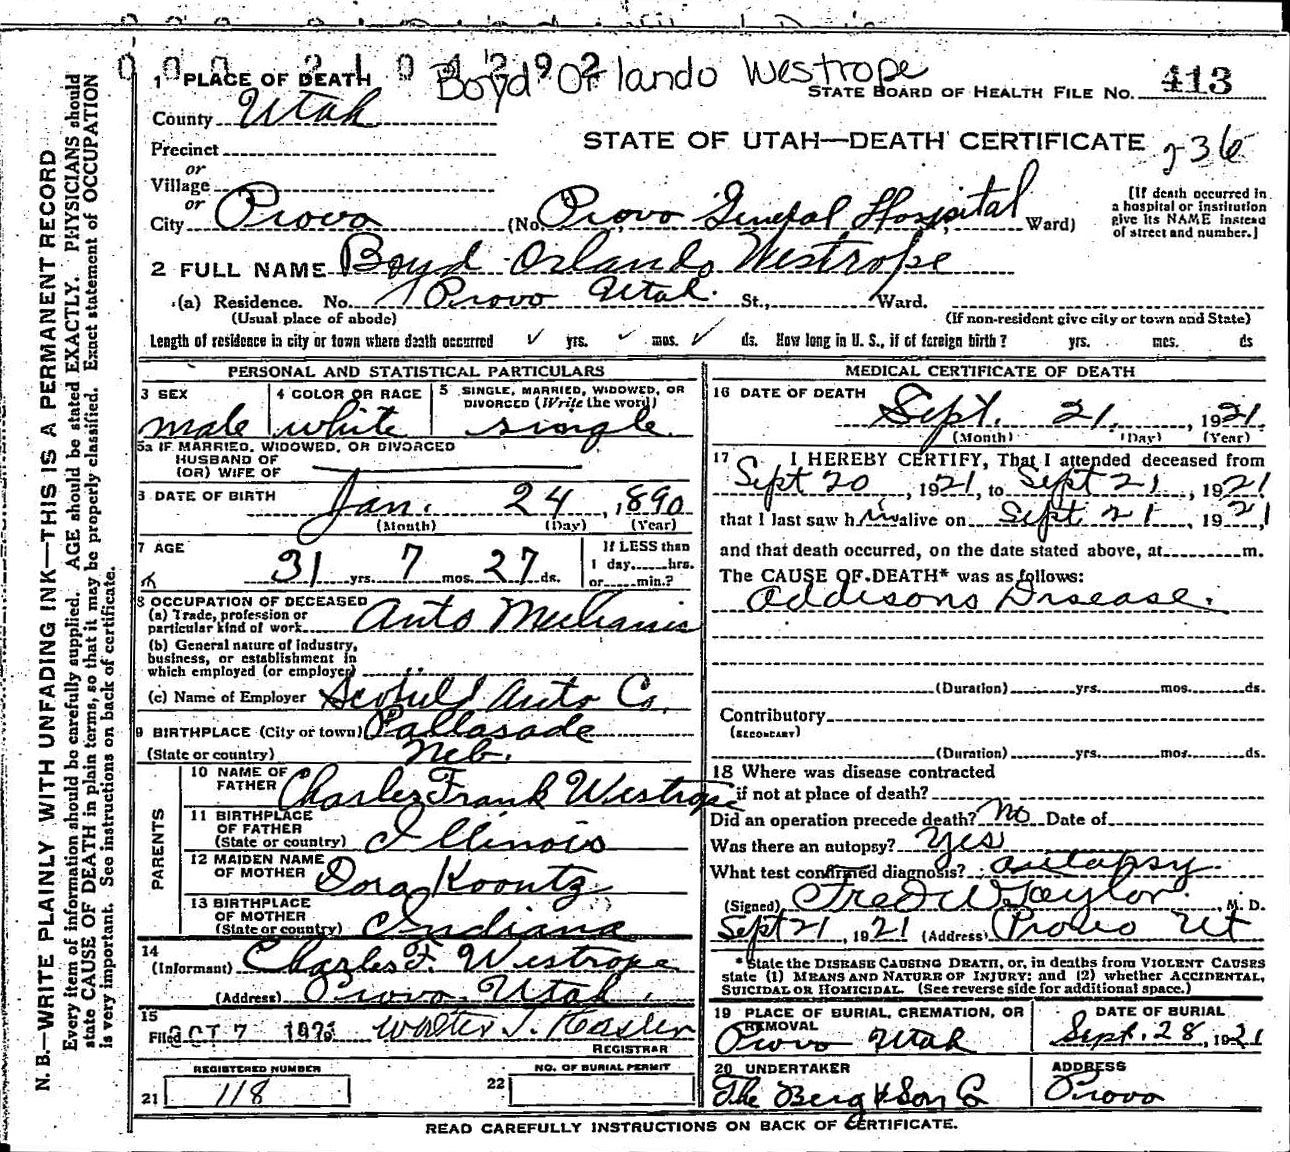 Boyd Orlando Westrope
1 PLACE OF DEATH
STATE BOARD OF HEALTH FILE No. 413
County Utah
STATE OF UTAH—DEATH CERTIFICATE 236
Precinct
or
Village
or
City Provo (No. Provo General Hospital Ward)
[If death occurred in a hospital or institution give its NAME instead of street and number.]
2 FULL NAME Boyd Orlando Westrope
(a) Residence. No. Provo Utah. St., Ward.
(Usual place of abode) (If non-resident give city or town and State)
Length of residence in city or town where death occurred ✓ yrs. ✓ mos. ✓ ds. How long in U. S., if of foreign birth? yrs. mos. ds
PERSONAL AND STATISTICAL PARTICULARS
3 SEX male
4 COLOR OR RACE white
5 SINGLE, MARRIED, WIDOWED, OR DIVORCED (Write the word) single
5a IF MARRIED, WIDOWED, OR DIVORCED
HUSBAND OF
(OR) WIFE OF
DATE OF BIRTH Jan. 24, 1890
(Month) (Day) (Year)
7 AGE 31 yrs. 7 mos. 27 ds.
If LESS than
1 day, hrs.
or min.?
8 OCCUPATION OF DECEASED
(a) Trade, profession or
particular kind of work Auto Mechanic
(b) General nature of industry,
business, or establishment in
which employed (or employer)
(c) Name of Employer Auto Co.
9 BIRTHPLACE (City or town) Pallasade
(State or country) Neb.
PARENTS
10 NAME OF FATHER Charles Frank Westrope
11 BIRTHPLACE OF FATHER (State or country) Illinois
12 MAIDEN NAME OF MOTHER Dora Koontz
13 BIRTHPLACE OF MOTHER (State or country) Indiana
14
(Informant) Charles F. Westrope
(Address) Provo, Utah.
15
Filed OCT 7 Walter T. Hasler
REGISTRAR
REGISTERED NUMBER
21 118
NO. OF BURIAL PERMIT
22
MEDICAL CERTIFICATE OF DEATH
16 DATE OF DEATH
Sept. 21, 1921.
(Month) (Day) (Year)
17 I HEREBY CERTIFY, That I attended deceased from
Sept 20, 1921, to Sept 21, 1921
that I last saw him alive on Sept 21, 1921
and that death occurred, on the date stated above, at m.
The CAUSE OF DEATH* was as follows:
Addisons Disease.
(Duration) yrs. mos. ds.
Contributory
(SECONDARY)
(Duration) yrs. mos. ds.
18 Where was disease contracted
if not at place of death?
Did an operation precede death? No Date of
Was there an autopsy? Yes
What test confirmed diagnosis? autopsy
(Signed) Fred W Taylor. M. D.
Sept 21, 1921 (Address) Provo Ut
* State the DISEASE CAUSING DEATH, or, in deaths from VIOLENT CAUSES
state (1) MEANS AND NATURE OF INJURY; and (2) whether ACCIDENTAL,
SUICIDAL OR HOMICIDAL. (See reverse side for additional space.)
19 PLACE OF BURIAL, CREMATION, OR REMOVAL
Provo Utah
DATE OF BURIAL
Sept. 28, 1921
20 UNDERTAKER
The Berg & Son Co
ADDRESS
Provo
READ CAREFULLY INSTRUCTIONS ON BACK OF CERTIFICATE.
N. B.—WRITE PLAINLY WITH UNFADING INK—THIS IS A PERMANENT RECORD
Every item of information should be carefully supplied. AGE should be stated EXACTLY. PHYSICIANS should
state CAUSE OF DEATH in plain terms, so that it may be properly classified. Exact statement of OCCUPATION
is very important. See instructions on back of certificate.